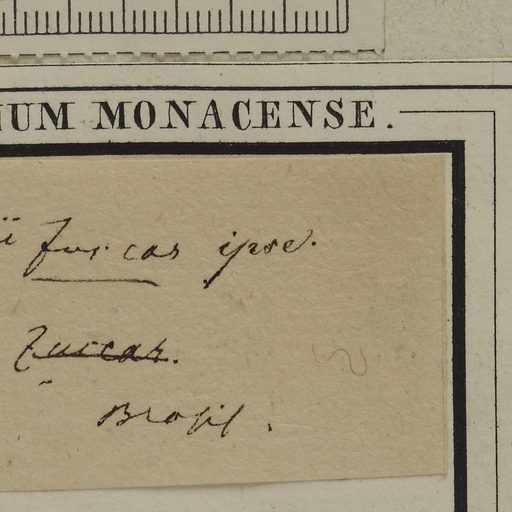 IUM MONACENSE.
ii furcas ipse.
Zuccar.
Brasil.